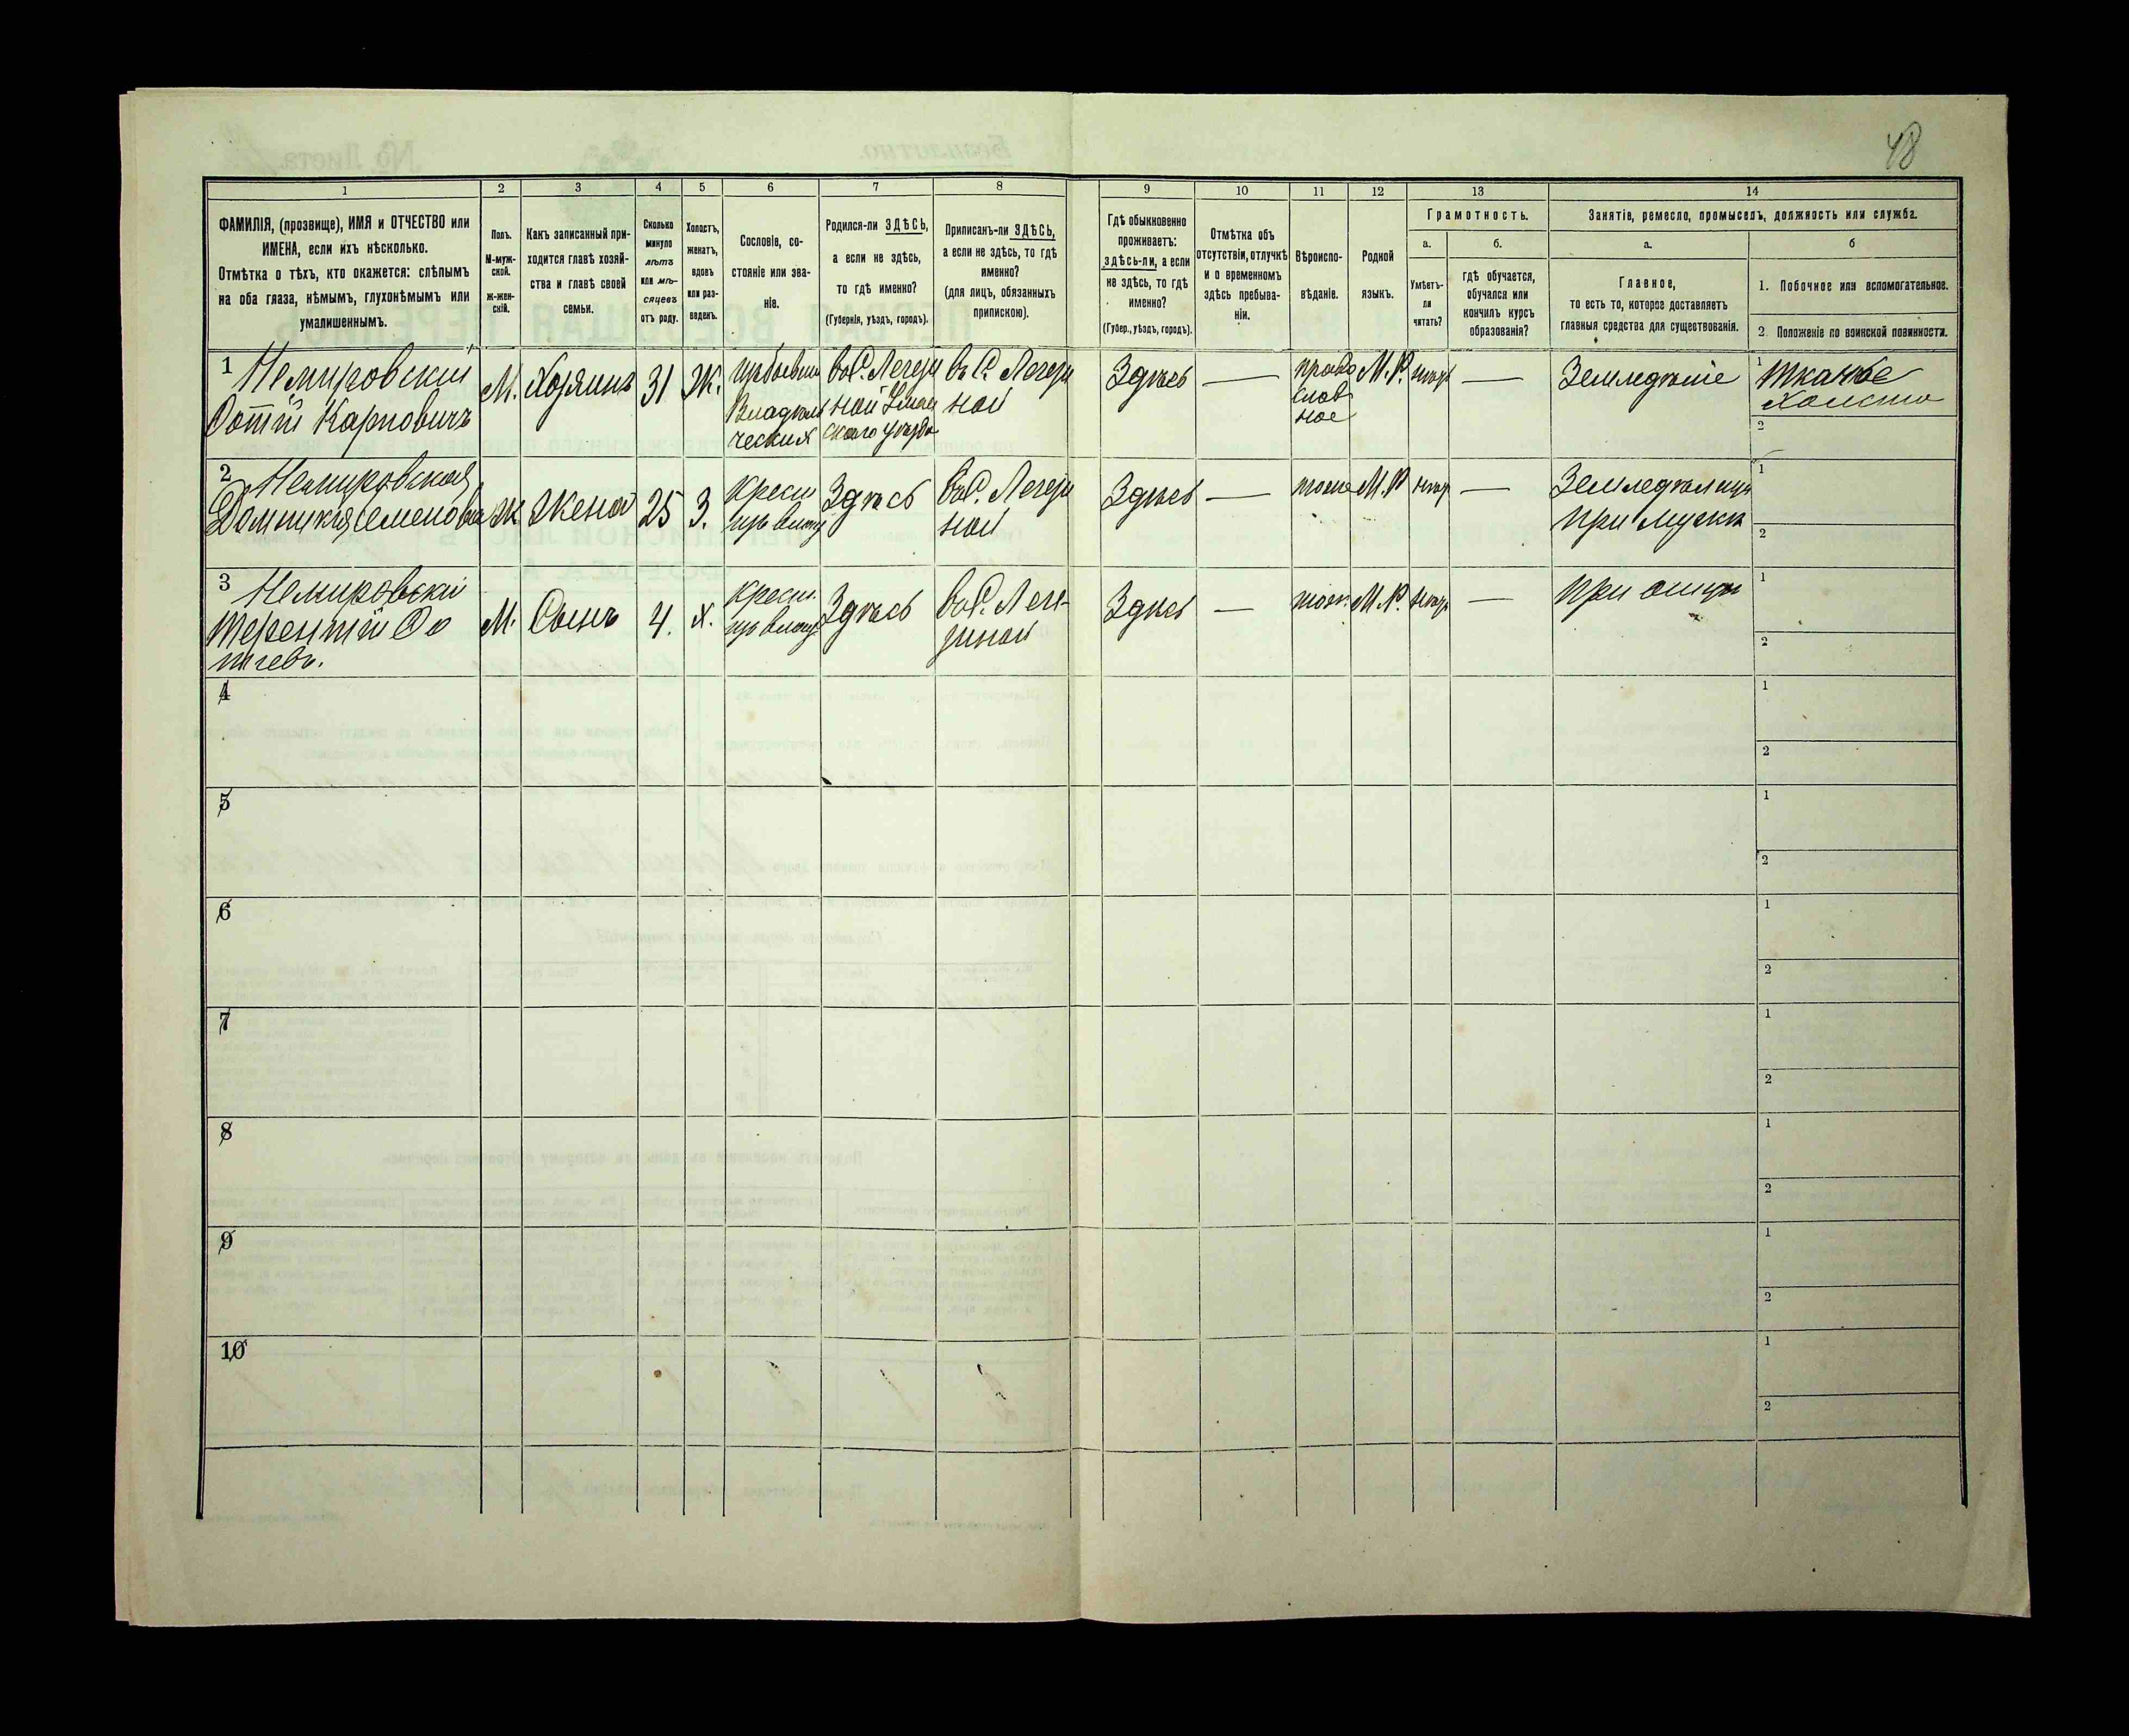 48
1 2 3 4 5 6 7 8 9 10 11 12 13 14
ФАМИЛІЯ, (прозвище), ИМЯ и ОТЧЕСТВО или
ИМЕНА, если ихъ нѣсколько.
Отмѣтка о тѣхъ, кто окажется: слѣпымъ
на оба глаза, нѣмымъ, глухонѣмымъ или
умалишеннымъ.
Полъ.
М-муж-
ской.
ж-жен-
скій.
Какъ записанный при-
ходится главѣ хозяй-
ства и главѣ своей
семьи.
Сколько
минуло
лѣтъ
или мѣ-
сяцевъ
отъ роду.
Холостъ,
женатъ,
вдовъ
или раз-
веденъ.
Сословіе, со-
стояніе или зва-
ніе.
Родился-ли ЗДѢСЬ,
а если не здѣсь,
то гдѣ именно?
(Губернія, уѣздъ, городъ).
Приписанъ-ли ЗДѢСЬ,
а если не здѣсь, то гдѣ
именно?
(для лицъ, обязанныхъ
припискою).
Гдѣ обыкновенно
проживаетъ:
здѣсь-ли, а если
не здѣсь, то гдѣ
именно?
(Губер., уѣздъ, городъ).
Отмѣтка объ
отсутствіи, отлучкѣ
и о временномъ
здѣсь пребыва-
ніи.
Вѣроиспо-
вѣданіе.
Родной
языкъ.
Грамотность.
а.
Умѣетъ-
ли
читать?
б.
гдѣ обучается,
обучался или
кончилъ курсъ
образованія?
Занятіе, ремесло, промыселъ, должность или служба.
а.
Главное,
то есть то, которое доставляетъ
главныя средства для существованія.
б
1. Побочное или вспомогательное.
2. Положеніе по воинской повинности.
1 Немировскій
Фотій Карповичъ
М.
Хозяинъ
31
Ж.
Владѣль
ческихъ
въ С. Легези
ной Уман
скаго уѣзда
въ С. Легези
ной
Здѣсь
—
право
слав
ное
М.Р.
—
Земледѣліе
1 тканье
холста
2
2 Немировская
Домникія Семеновна
Ж
Жена
25
З.
Крест
Здѣсь
въ С. Легези
ной
Здѣсь
—
тоже
М.Р
—
при мужѣ
1
2
3 Немировскій
Терентій Фо
тіевъ.
М.
Сынъ
4.
Х.
Крест.
Здѣсь
въ С. Леге-
зиной
Здѣсь
—
М.Р.
—
при отцѣ
1
2
4
1
2
5
1
2
6
1
2
7
1
2
8
1
2
9
1
2
10
1
2